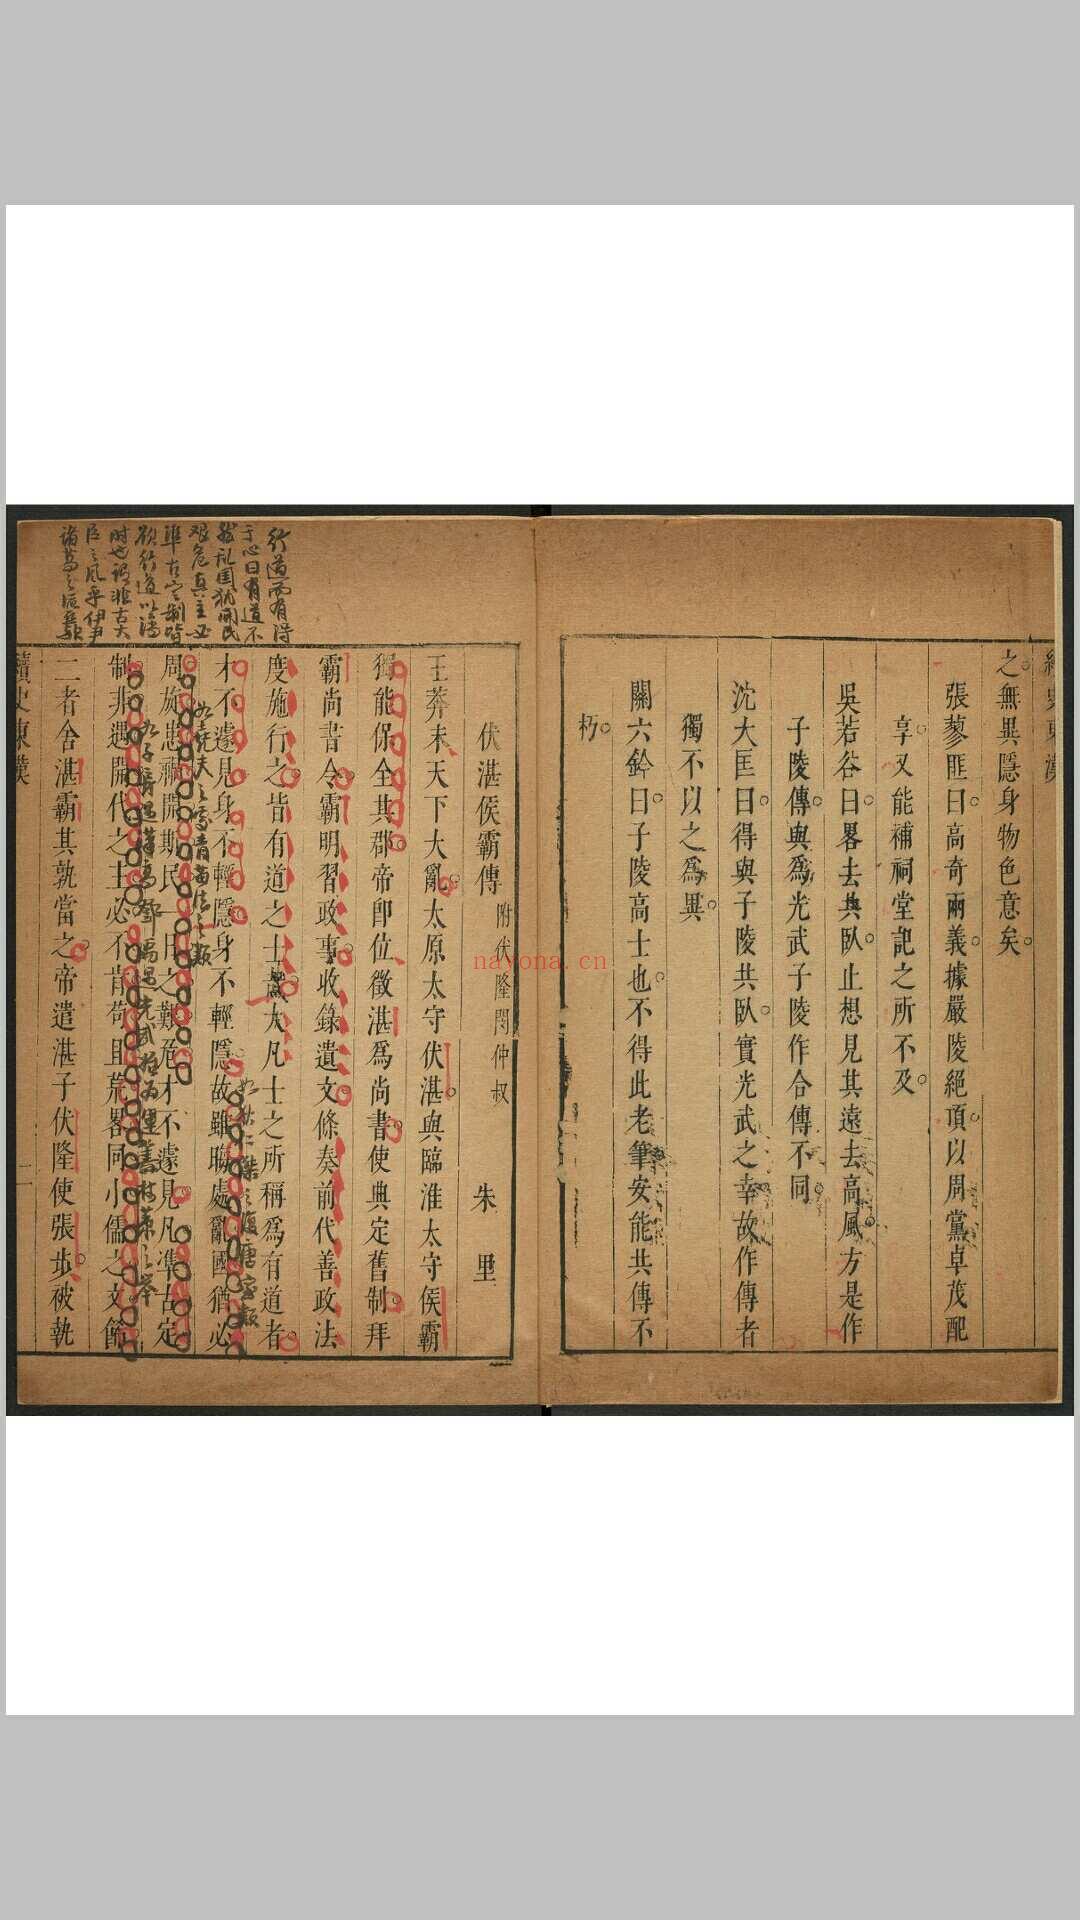 之無異隱身物色意矣
張蓼匪曰高奇兩義據嚴陵絕頂以周黨卓茂配
享又能補祠堂記之所不及
吳若谷曰畧去共臥止想見其遠去高風方是作
子陵傳與爲光武子陵作合傳不同
沈大匡曰得與子陵共臥實光武之幸故作傳者
獨不以之爲異
關六鈐曰子陵高士也不得此老筆安能共傳不
朽
伏湛侯霸傳 附伏隆閔仲叔 朱里
王莽末天下大亂太原太守伏湛與臨淮太守侯霸
獨能保全其郡帝卽位徵湛爲尚書使典定舊制拜
霸尚書令霸明習政事收錄遺文條奏前代善政法
度施行之皆有道之士歟大凡士之所稱爲有道者
才不遽見身不輕隱身不輕隱故雖聯處亂國猶必
周旋患難開斯民一日之艱危才不遽見凡準古定
制非遇開代之主必不肯苟且荒畧同小儒之文飾
二者舍湛霸其孰當之帝遣湛子伏隆使張步被執
續史東漢
二
行道而有得
于心曰有道不
然亂国犹開民
艰危真主必
準古定制皆
欲行道以濟
时也謂非古大
臣之風乎伊尹
nayona.cn